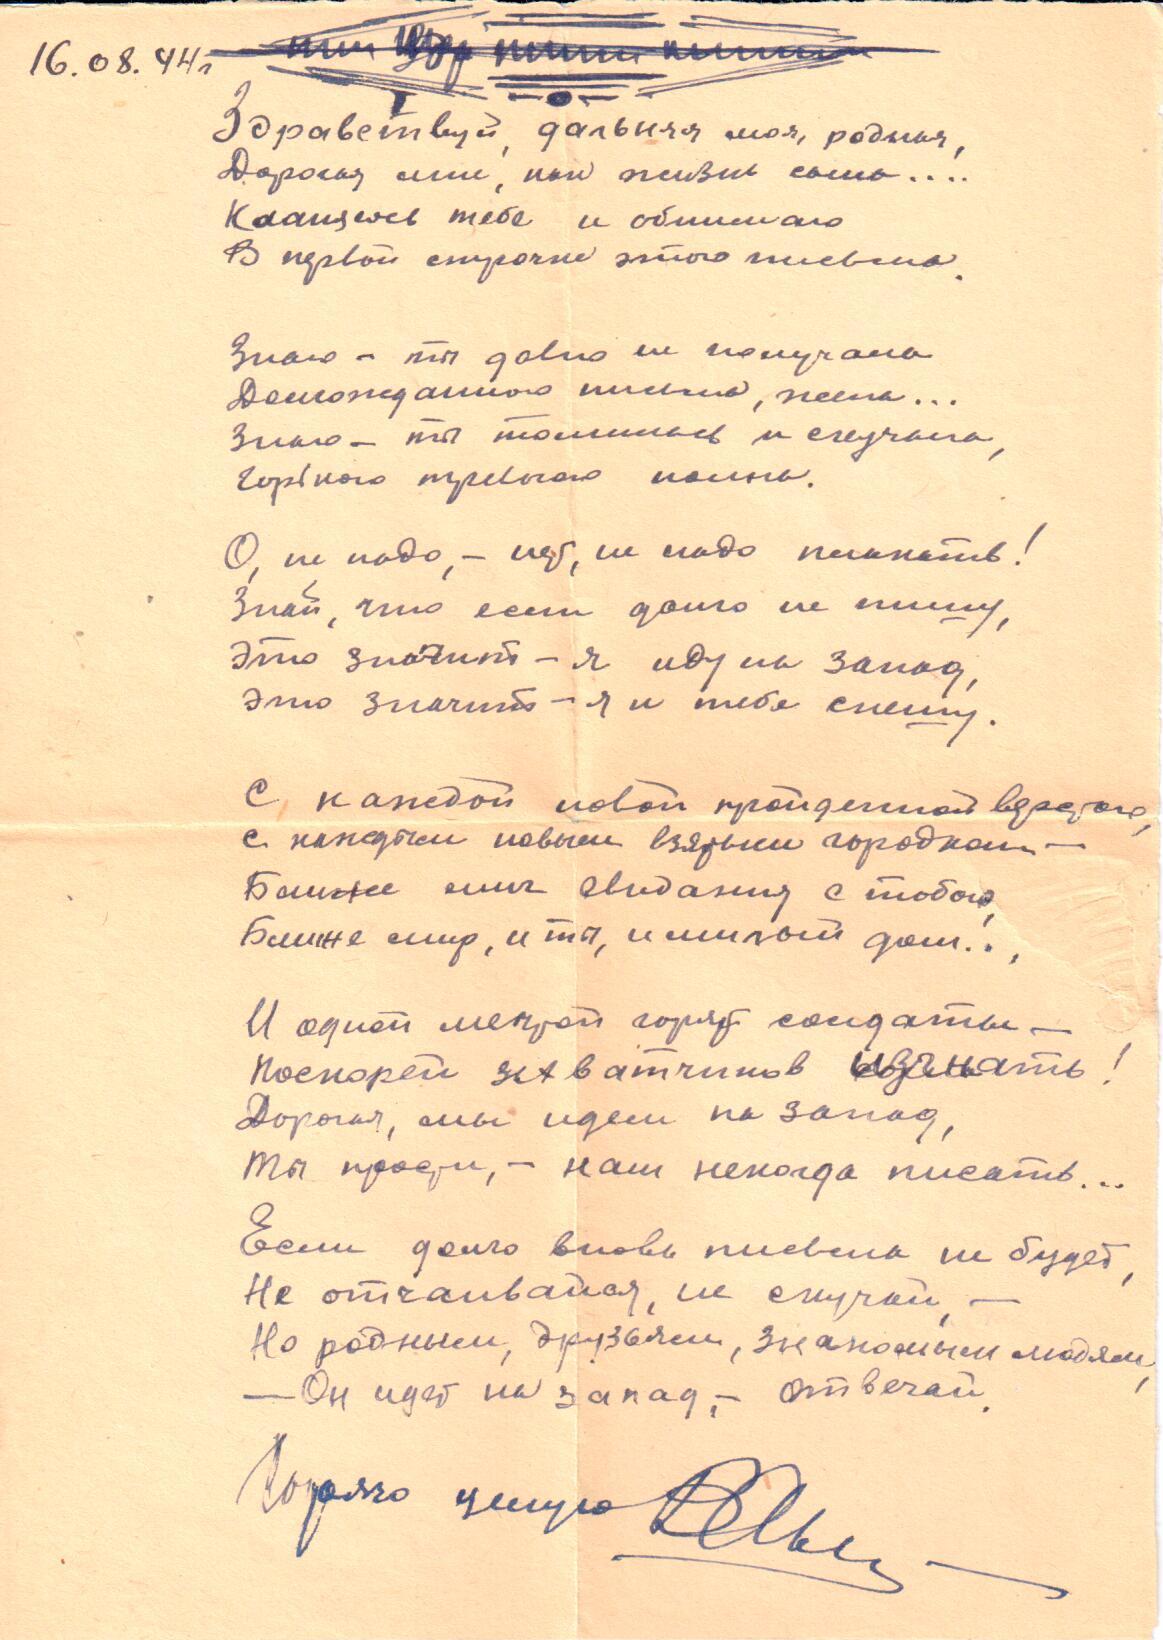 16.08.44г
Здравствуй, дальняя моя, родная,
Дорогая мне, как жизнь сама....
Кланяюсь тебе и обнимаю
В первой строчке этого письма.
Знаю – ты давно не получала
Долгожданного письма, жена...
Знаю – ты томилась и скучала,
Горькою тревогою полна.
О, не надо, – нет, не надо плакать!
Знай, что если долго не пишу,
Это значит – я иду на запад,
Это значит – я к тебе спешу.
С каждой новой пройденной верстою,
С каждым новым взятым городком –
Ближе миг свидания с тобою,
Ближе мир, и ты, и милый дом...
И одной мечтой горят солдаты –
Поскорей захватчиков изгнать!
Дорогая, мы идем на запад,
Ты прости, – нам некогда писать...
Если долго вновь письма не будет,
Не отчаивайся, не скучай, –
Но родным, друзьям, знакомым людям,
– Он идет на запад, – отвечай.
Горячо целую